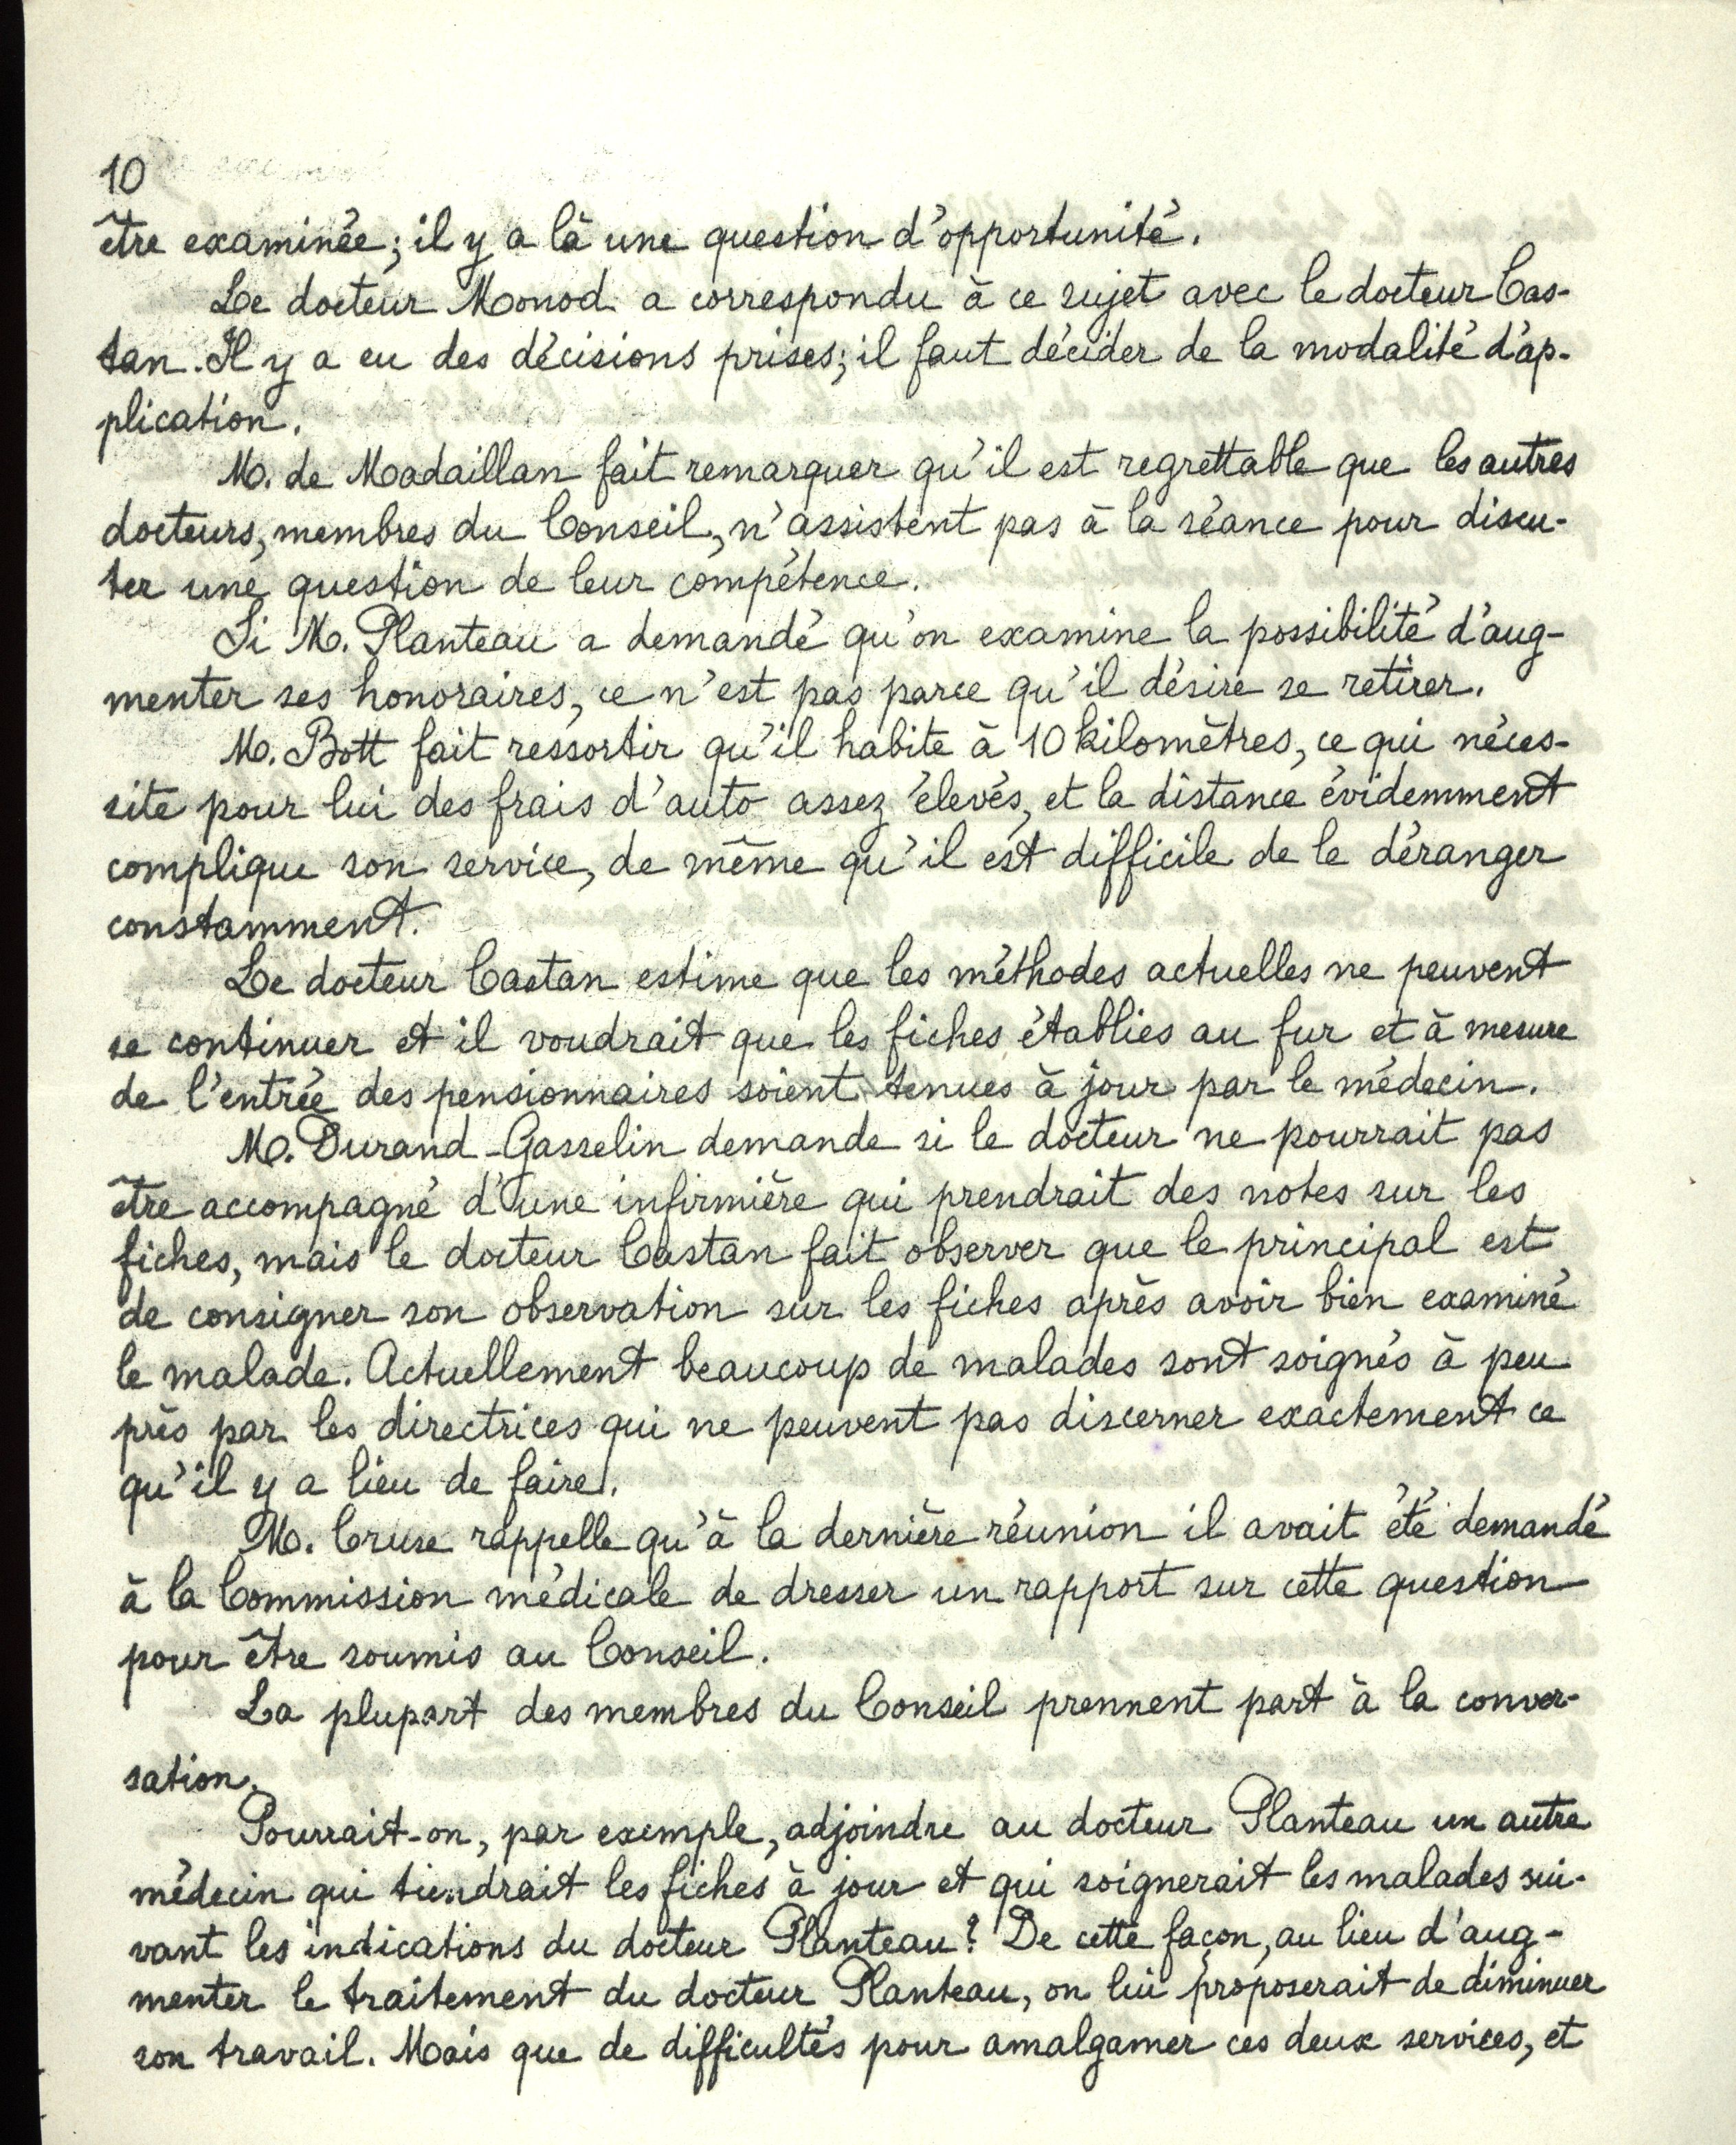 10
être examinée; il y a là une question d'opportunité.
Le docteur Monod a correspondu à ce sujet avec le docteur Cas-
tan. Il y a eu des décisions prises; il faut décider de la modalité d'ap-
plication.
M. de Madaillan fait remarquer qu'il est regrettable que les autres
docteurs, membres du Conseil, n'assistent pas à la séance pour discu-
ter une question de leur compétence.
Si M. Planteau a demandé qu'on examine la possibilité d'aug-
menter ses honoraires, ce n'est pas parce qu'il désire se retirer.
M. Bott fait ressortir qu'il habite à 10 kilomètres, ce qui néces-
site pour lui des frais d'auto assez élevés, et la distance évidemment
complique son service, de même qu'il est difficile de le déranger
constamment.
Le docteur Castan estime que les méthodes actuelles ne peuvent
se continuer et il voudrait que les fiches établies au fur et à mesure
de l'entrée des pensionnaires soient tenues à jour par le médecin.
M. Durand-Gasselin demande si le docteur ne pourrait pas
être accompagné d'une infirmière qui prendrait des notes sur les
fiches, mais le docteur Castan fait observer que le principal est
de consigner son observation sur les fiches après avoir bien examiné
le malade. Actuellement beaucoup de malades sont soignés à peu
près par les directrices qui ne peuvent pas discerner exactement ce
qu'il y a lieu de faire.
M. Cruse rappelle qu'à la dernière réunion il avait été demandé
à la Commission médicale de dresser un rapport sur cette question
pour être soumis au Conseil.
La plupart des membres du Conseil prennent part à la conver-
sation.
Pourrait-on, par exemple, adjoindre au docteur Planteau un autre
médecin qui tiendrait les fiches à jour et qui soignerait les malades sui-
vant les indications du docteur Planteau? De cette façon, au lieu d'aug-
menter le traitement du docteur Planteau, on lui proposerait de diminuer
son travail. Mais que de difficultés pour amalgamer ces deux services, et